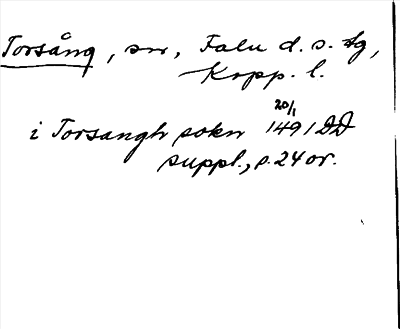 Torsång, sn, Falu d. s. dg,
Kopp. l.
i Torsangh sokn 20/1 1491 DD
suppl., s. 24 or.